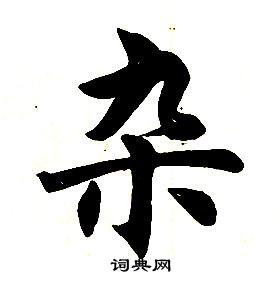 杂
词典网